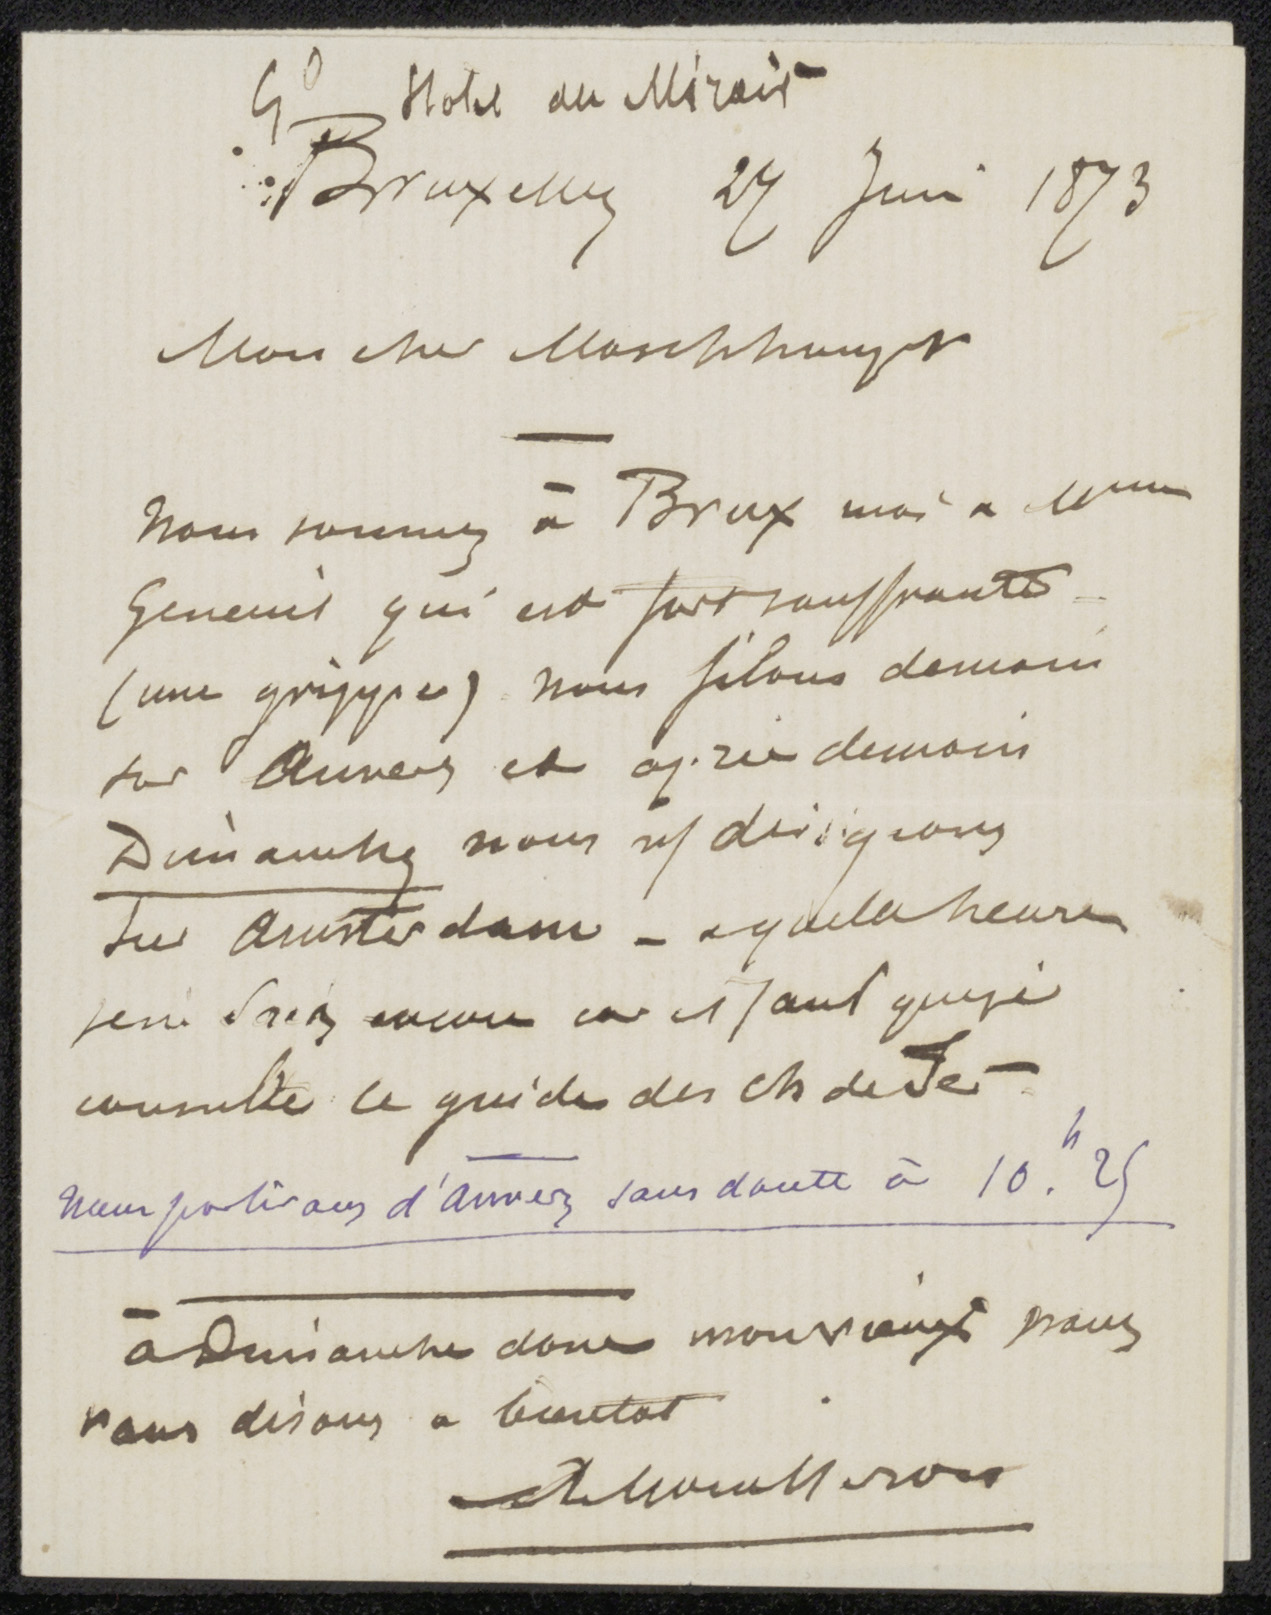 Gd Hotel du Miroir
Bruxelles 27 Juin 1873
Mon cher Moschhouyzer
nous sommes à Brux moi & Mme
qui est fort souffrante
(une grippe) nous filons demain
sur Anvers et après demain
Dimanche nous n/ dirigeons
sur Amsterdam - a quelle heure
je ne encore car il faut que je
consulte le guide des ch de Fer
nous partirons d'Anvers sans doute à 10.h 25
à Dimanche donc mon vieux nous
vous disons a bientot